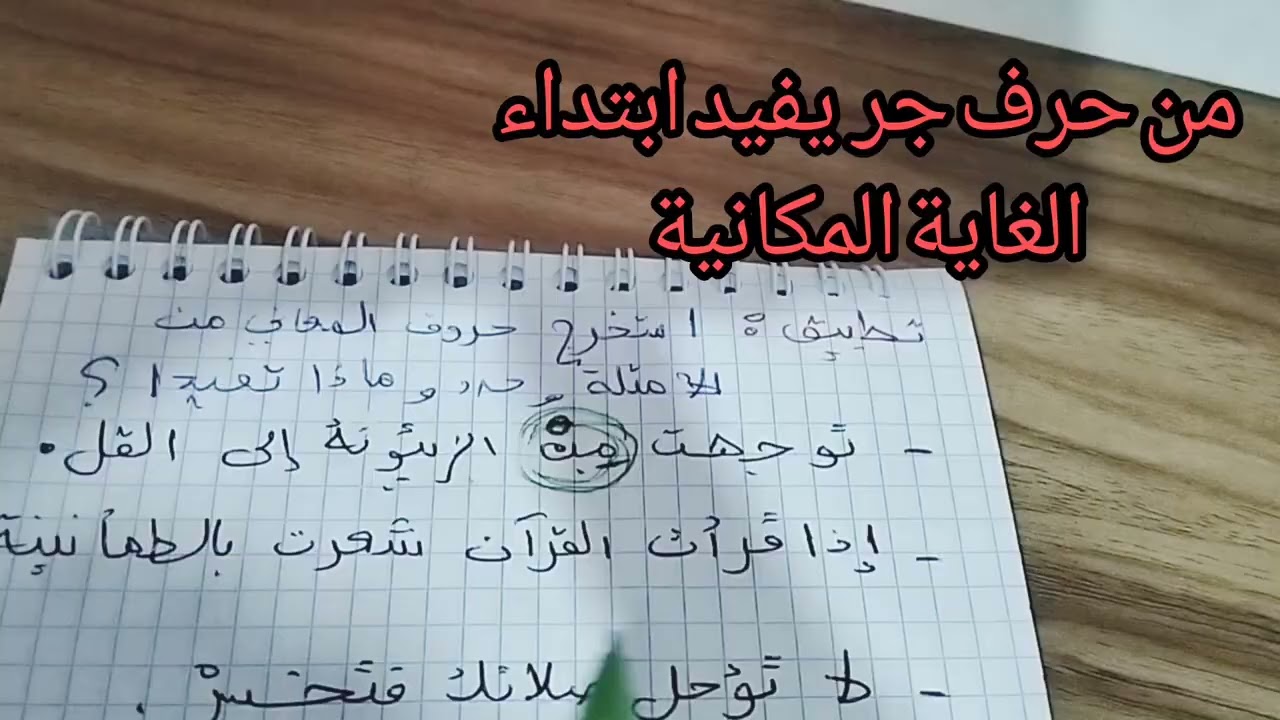 من حرف جر يفيد ابتداء
الغاية المكانية
تطبيق: استخرج حروف المعاني من
الأمثلة وماذا تفيد؟
- توجهت من الزيتونة إلى القل.
- إذا قرأت القرآن شعرت بالطمأنينة
- لا تؤجل صلاتك فتخسر.